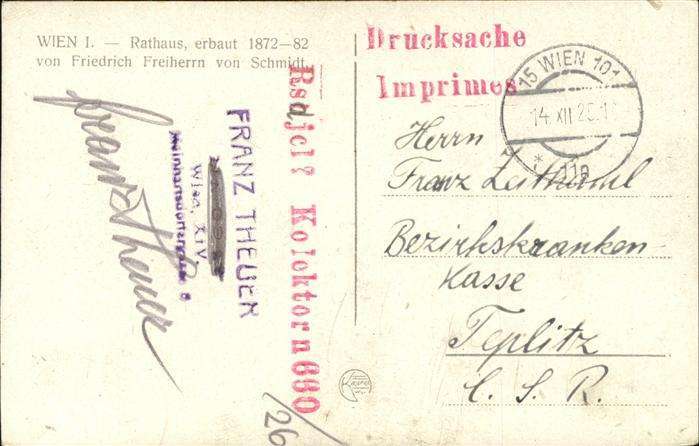 WIEN I. — Rathaus, erbaut 1872—82
von Friedrich Freiherrn von Schmidt.
Drucksache
Imprimes
15 WIEN 101
14.XII.25.1
* 11a
Herrn
Franz Zeithaml
Bezirkskranken-
kasse
Teplitz
C. S. R.
Franz Theuer
FRANZ THEUER
Wien, XIV.
Kolektor n 690
/26